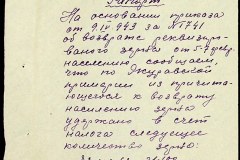 Рапорт
На основании приказа
от 9/IV 943 за № 741
об возврате реквизиро-
ваного зерна от 5-7 дер.
населению сообщаем,
что по Джуравской
примарии из причита-
ющегося к возврату
населению зерна
удержано в счет
налога следующее
количество зерна: